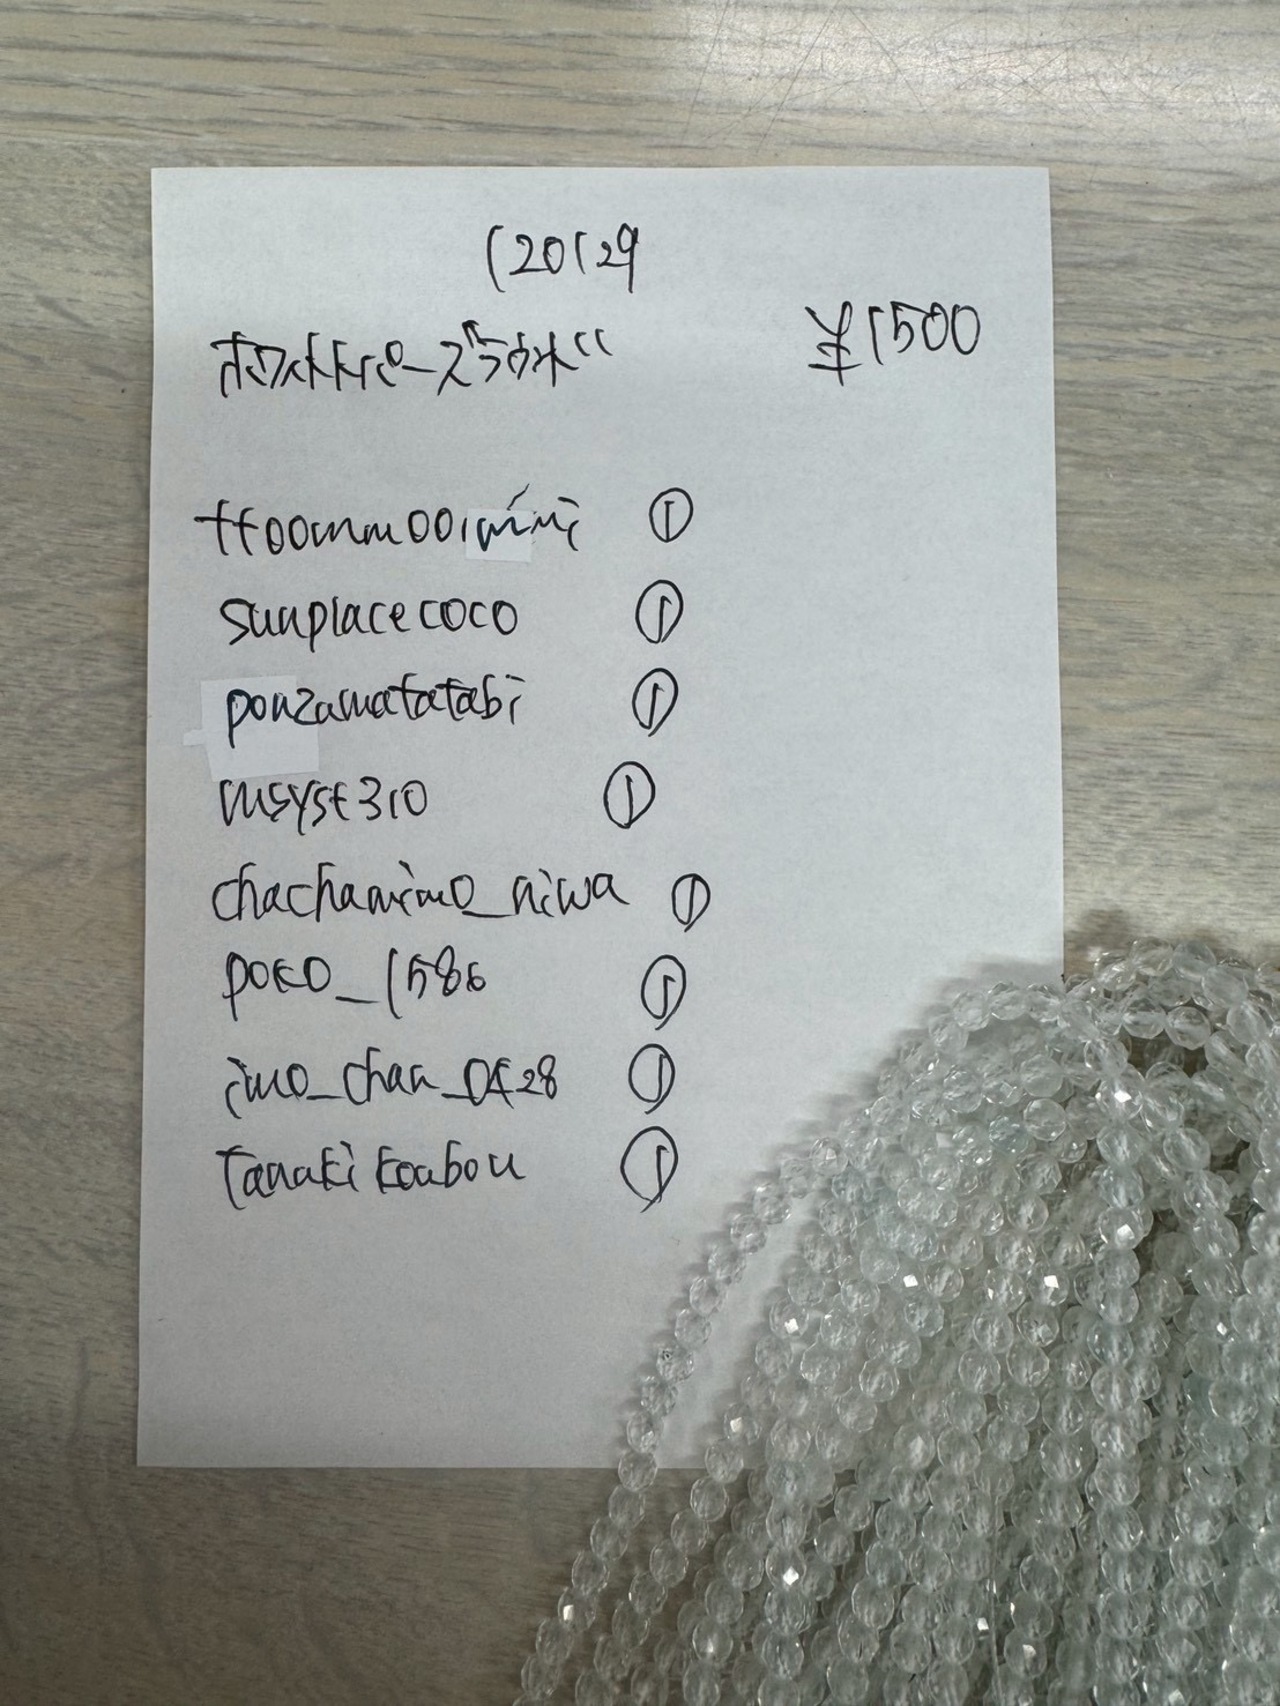 120129
ホワイトトパーズラウンドﾞ
¥1500
ttoomm001mimi ①
sunplacecoco ①
ponzamatatabi ①
msyst310 ①
chachamimo_niwa ①
poko_1586 ①
imo_chan_0428 ①
Tanakikoubou ①